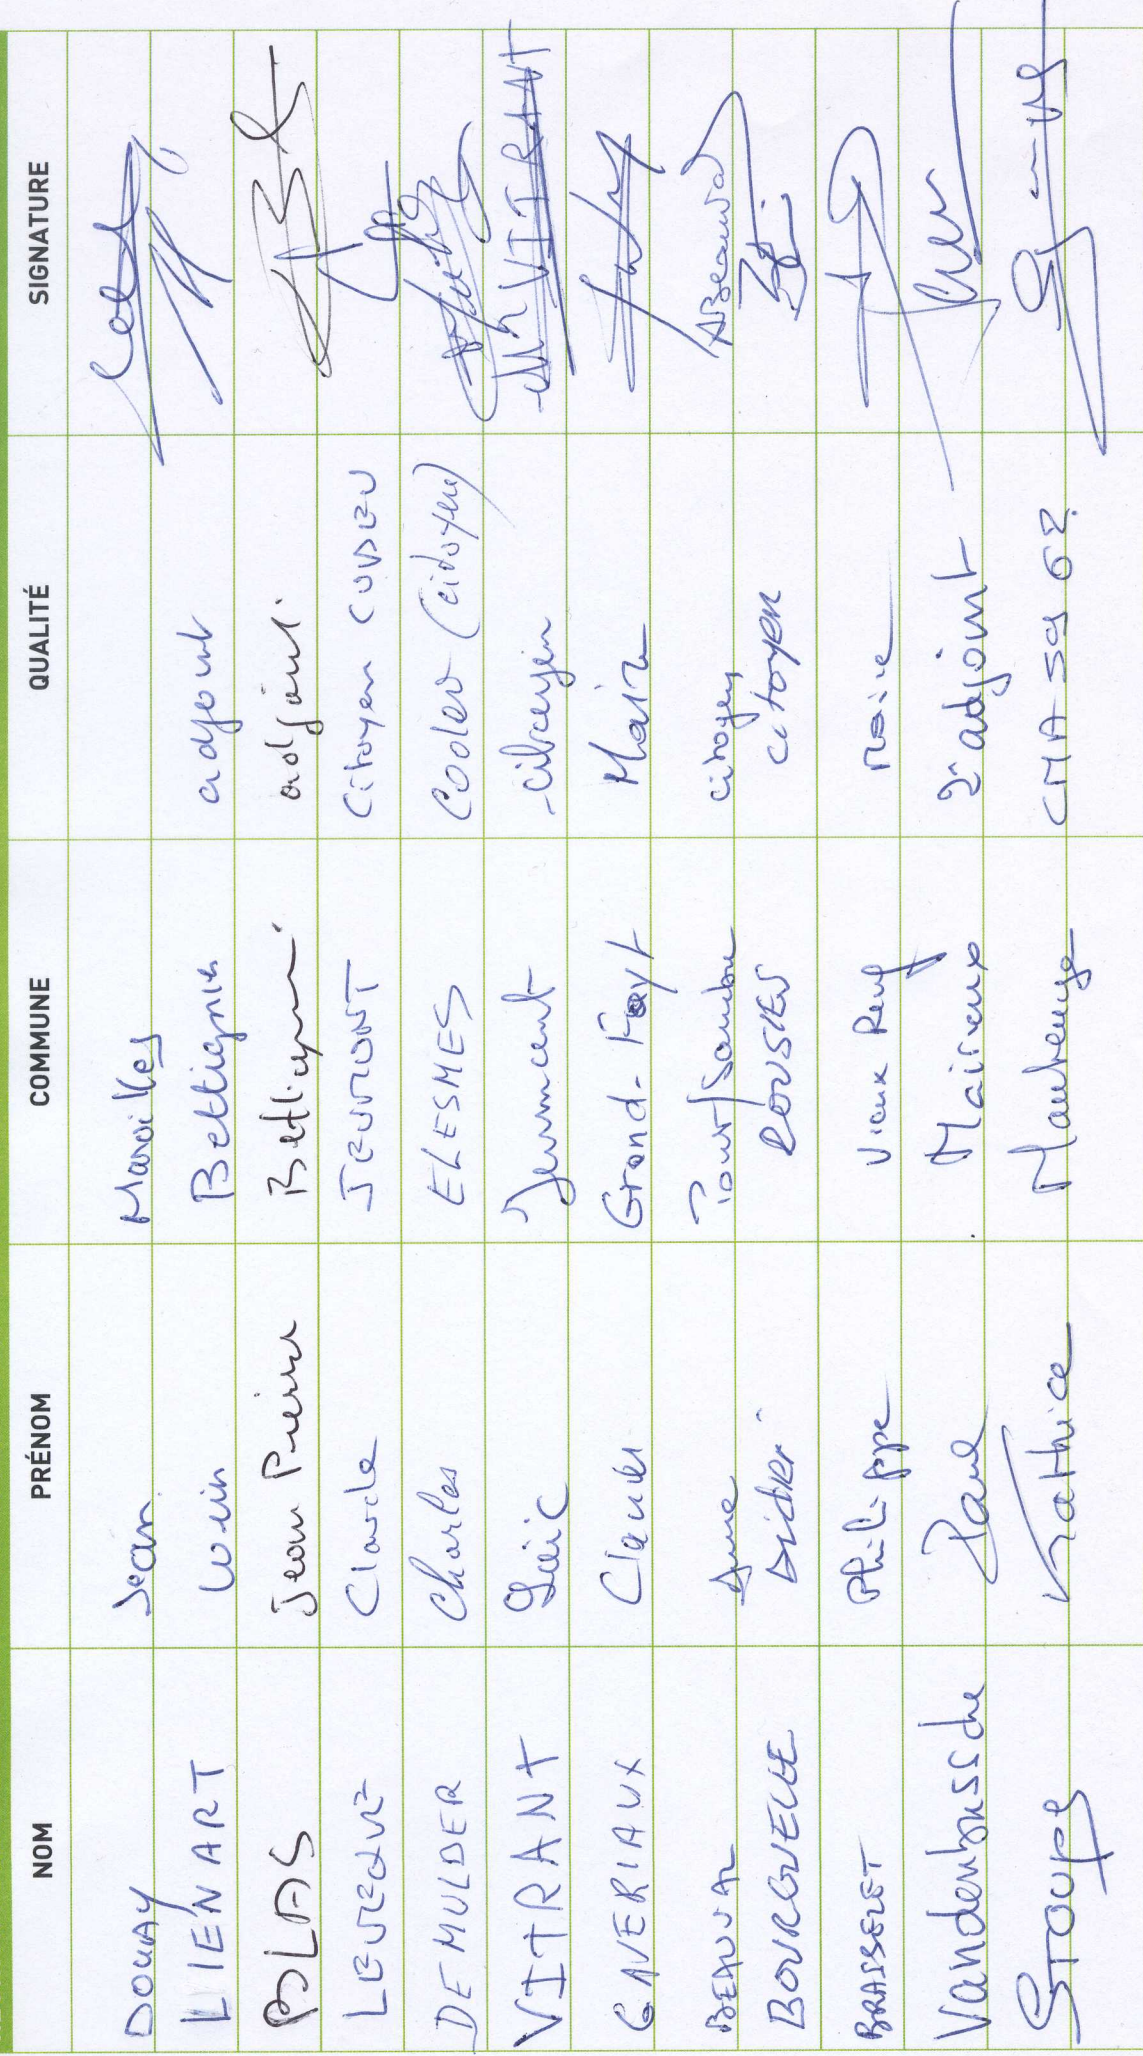 NOM PRÉNOM COMMUNE QUALITÉ SIGNATURE
DOUAY Jean Maroilles
LIENART Bettignies adjoint
BLAS Jean Pierre Bettignies adjoint
LEVEQUE Claude JEUMONT Citoyen CODEV
DEMULDER Charles ELESMES Codev (citoyen)
VITRANT Loïc Jeumont citoyen Mr VITRANT
GAVERIAUX Claude Grand-Fayt Maire
BEAUVAL Anne Pont/Sambre citoyen ABeauval
BOURGUELLE Didier ROUSIES citoyen
BRASSELET Philippe Vieux Reng Maire
Vandenbussche Paul Mairieux 2e adjoint
STOUPY Maubeuge CMA 59 62